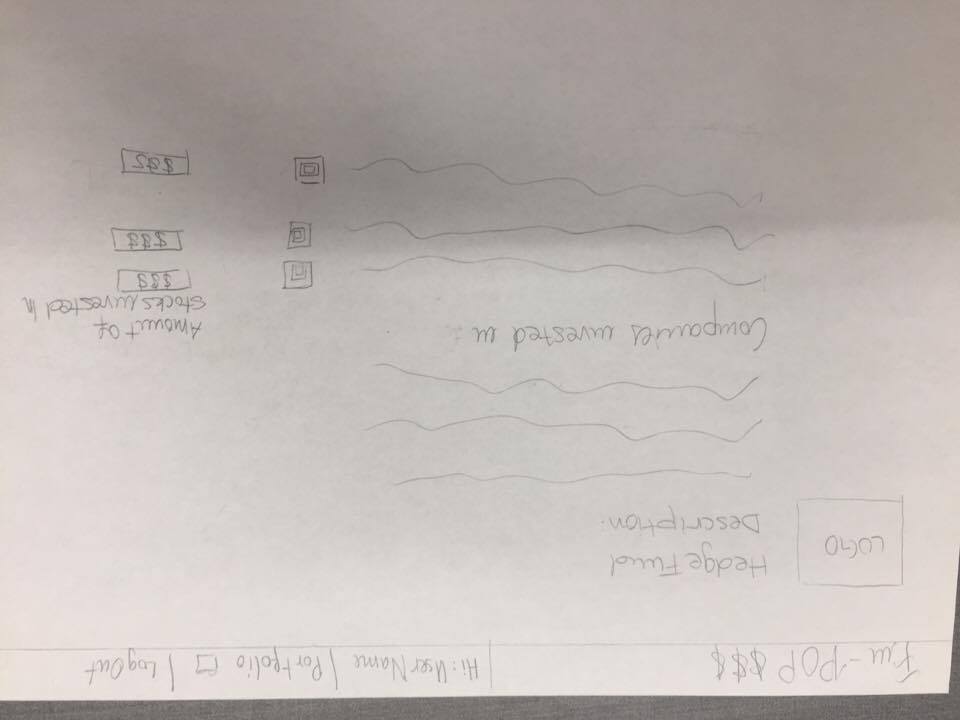 Fin-POP $$$ | Hi: UserName | Portfolio | LogOut
LOGO
Hedge Fund
Description:
Companies invested in
Amount of
stocks invested in
$$$
$$$
$$$